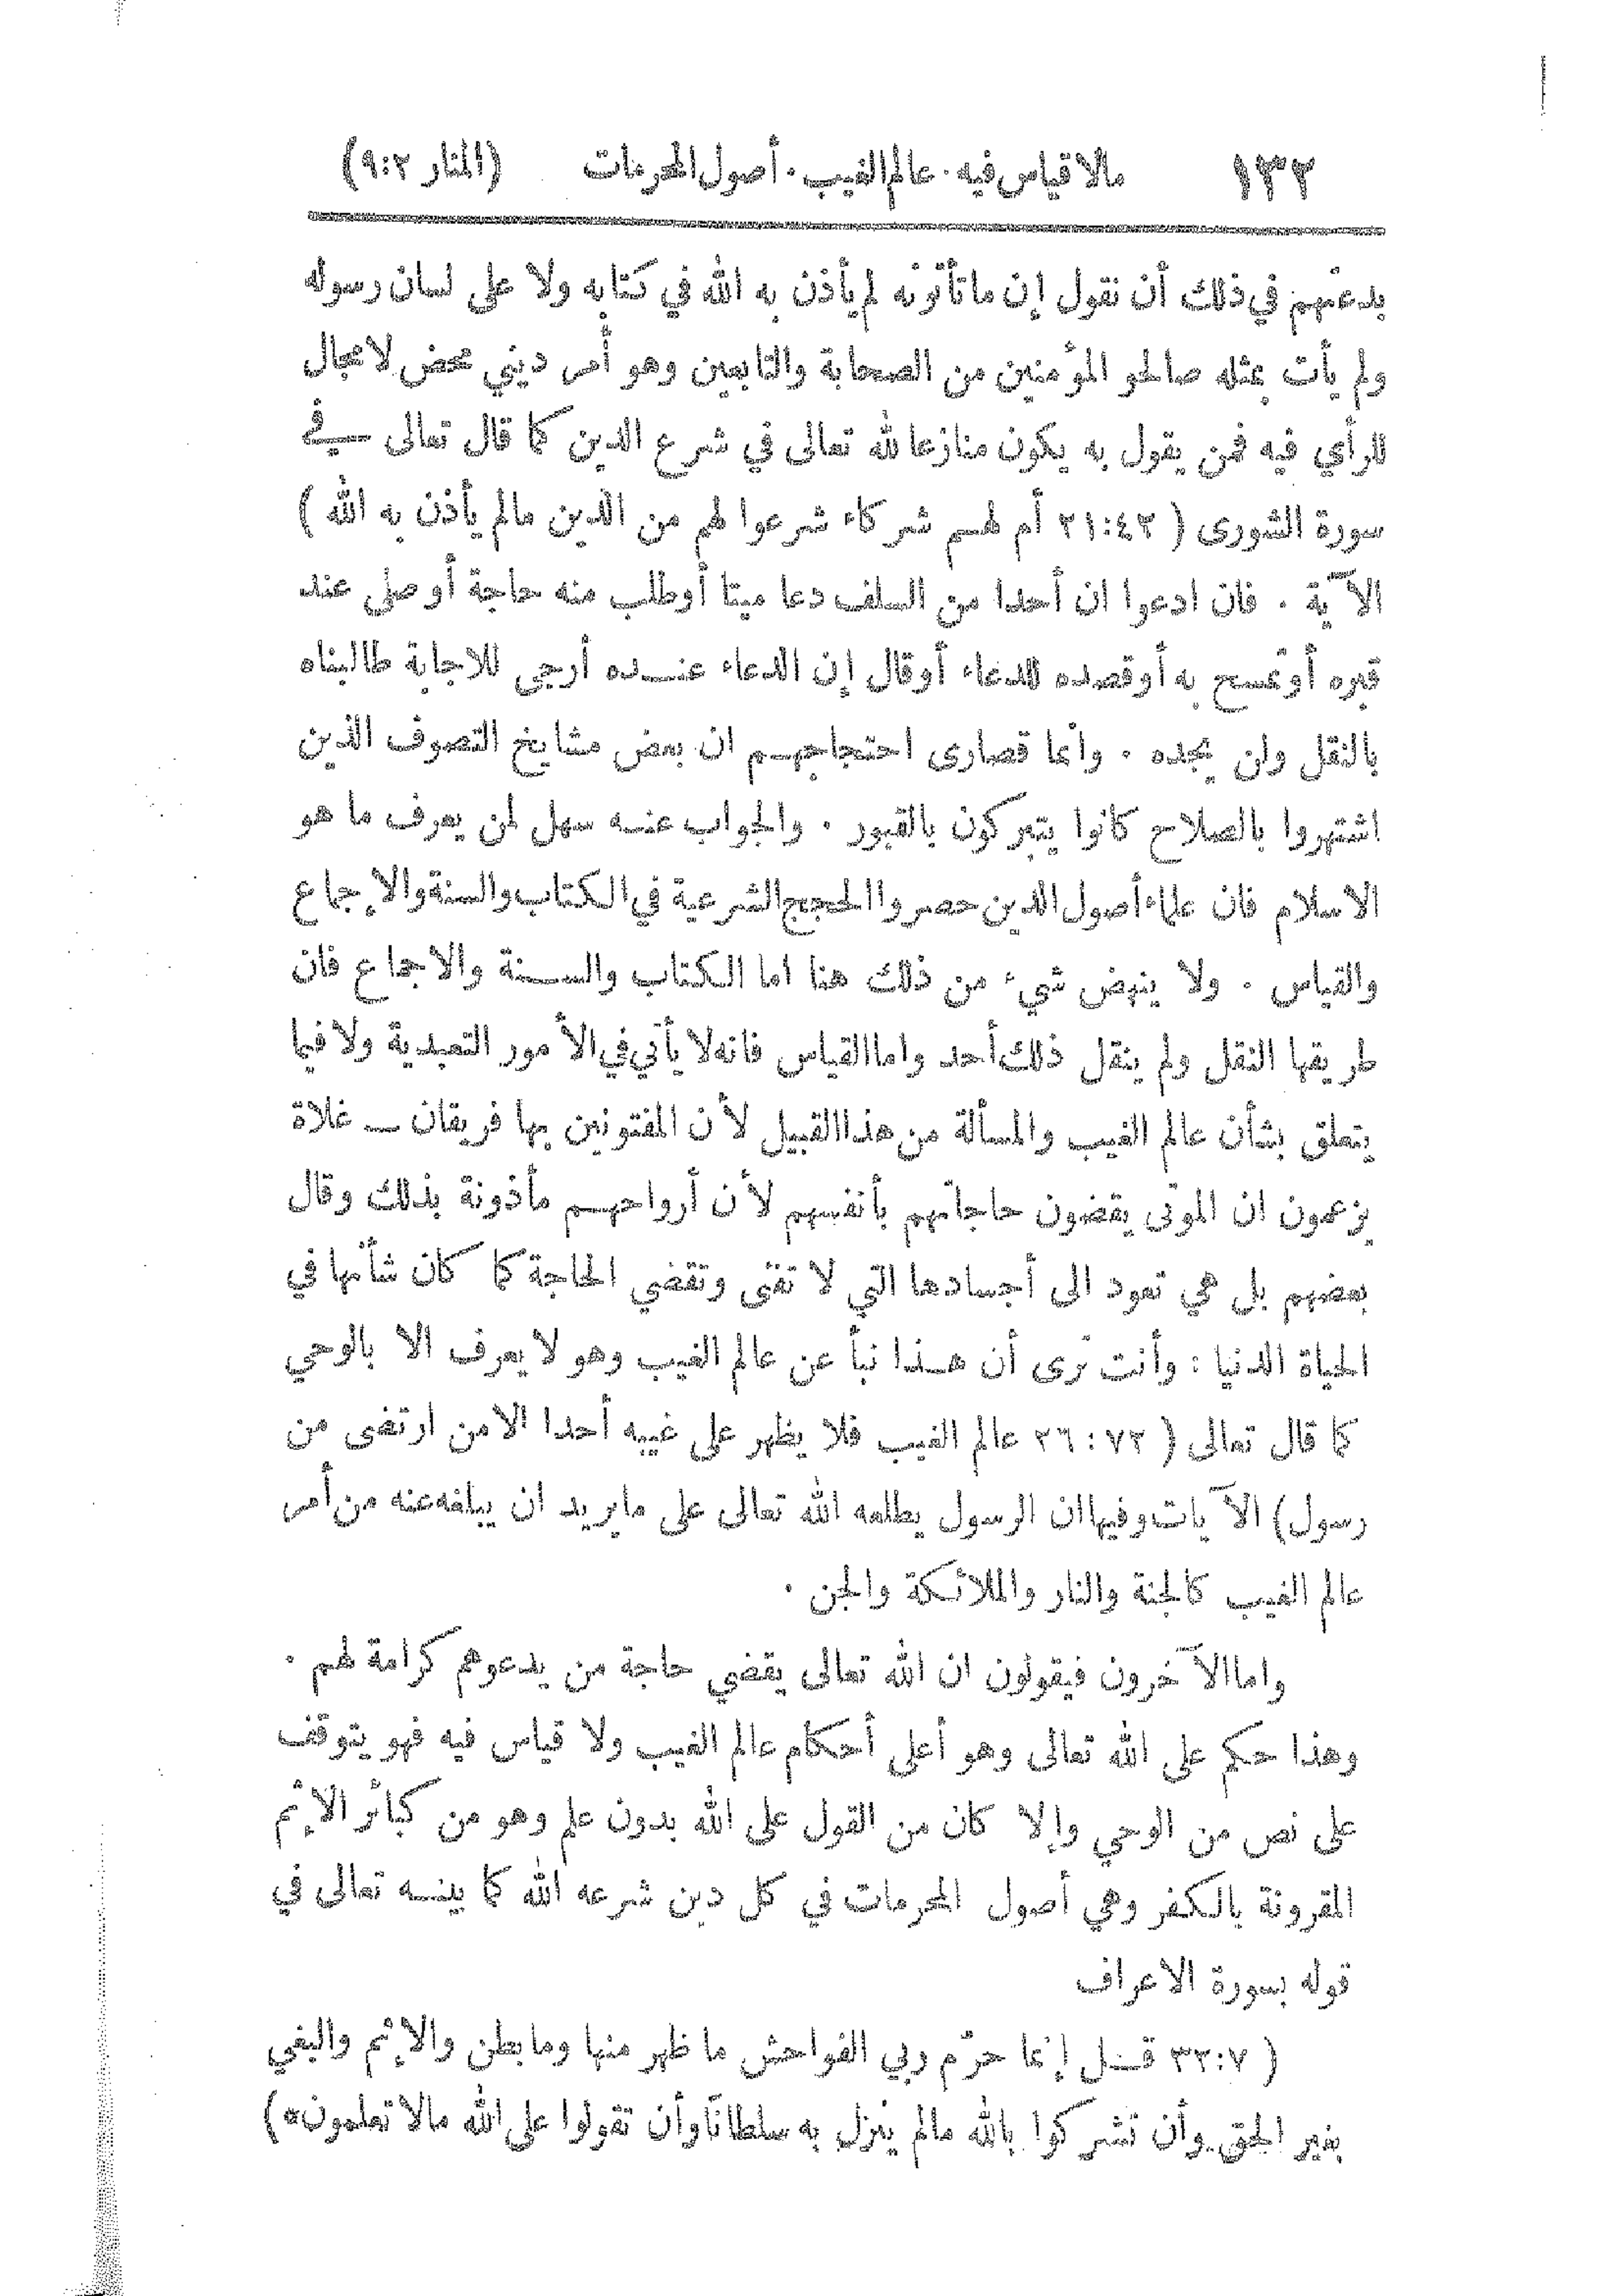 ١٣٢ مالا قياس فيه . عالم الغيب . أصول المحرمات (المنار ٩:٢)
بدعتهم في ذلك أن نقول إن ما تأتونه لم يأذن به الله في كتابه ولا على لسان رسوله
ولم يأت بمثله صالحو المؤمنين من الصحابة والتابعين وهو أمر ديني محض لا مجال
للرأي فيه فمن يقول به يكون منازعا لله تعالى في شرع الدين كما قال تعالى في
سورة الشورى ( ٢١:٤٢ أم لهم شركاء شرعوا لهم من الدين مالم يأذن به الله )
الآية . فان ادعوا ان أحدا من السلف دعا ميتا أوطلب منه حاجة أو صلى عند
قبره أوتمسح به أوقصده للدعاء أوقال إن الدعاء عنده أرجى للاجابة طالبناه
بالنقل ولن يجده . وانما قصارى احتجاجهم ان بعض مشايخ التصوف الذين
اشتهروا بالصلاح كانوا يتبركون بالقبور . والجواب عنه سهل لمن يعرف ما هو
الاسلام فان علماء أصول الدين حصروا الحجج الشرعية في الكتاب والسنة والإجماع
والقياس . ولا ينهض شيء من ذلك هنا اما الكتاب والسنة والاجماع فان
طريقها النقل ولم ينقل ذلك أحد واما القياس فانه لا يأتي في الأمور التعبدية ولا فيما
يتعلق بشأن عالم الغيب والمسألة من هذا القبيل لأن المفتونين بها فريقان ــ غلاة
يزعمون ان الموتى يقضون حاجاتهم بأنفسهم لأن أرواحهم مأذونة بذلك وقال
بعضهم بل هي تعود الى أجسادها التي لا تفنى وتقضي الحاجة كما كان شأنها في
الحياة الدنيا : وأنت ترى أن هذا نبأ عن عالم الغيب وهو لا يعرف الا بالوحي
كما قال تعالى ( ٢٦:٧٢ عالم الغيب فلا يظهر على غيبه أحدا الا من ارتضى من
رسول) الآيات وفيها ان الرسول يطلعه الله تعالى على ما يريد ان يبلغه عنه من أمر
عالم الغيب كالجنة والنار والملائكة والجن .
واما الآخرون فيقولون ان الله تعالى يقضي حاجة من يدعوهم كرامة لهم .
وهذا حكم على الله تعالى وهو أعلى أحكام عالم الغيب ولا قياس فيه فهو يتوقف
على نص من الوحي وإلا كان من القول على الله بدون علم وهو من كبائر الإثم
المقرونة بالكفر وهي أصول المحرمات في كل دين شرعه الله كما بينه تعالى في
قوله بسورة الاعراف
( ٣٢:٧ قل إنما حرّم ربي الفواحش ما ظهر منها وما بطن والإثم والبغي
بغير الحق وأن تشركوا بالله مالم ينزل به سلطانًا وأن تقولوا على الله مالا تعلمون*)